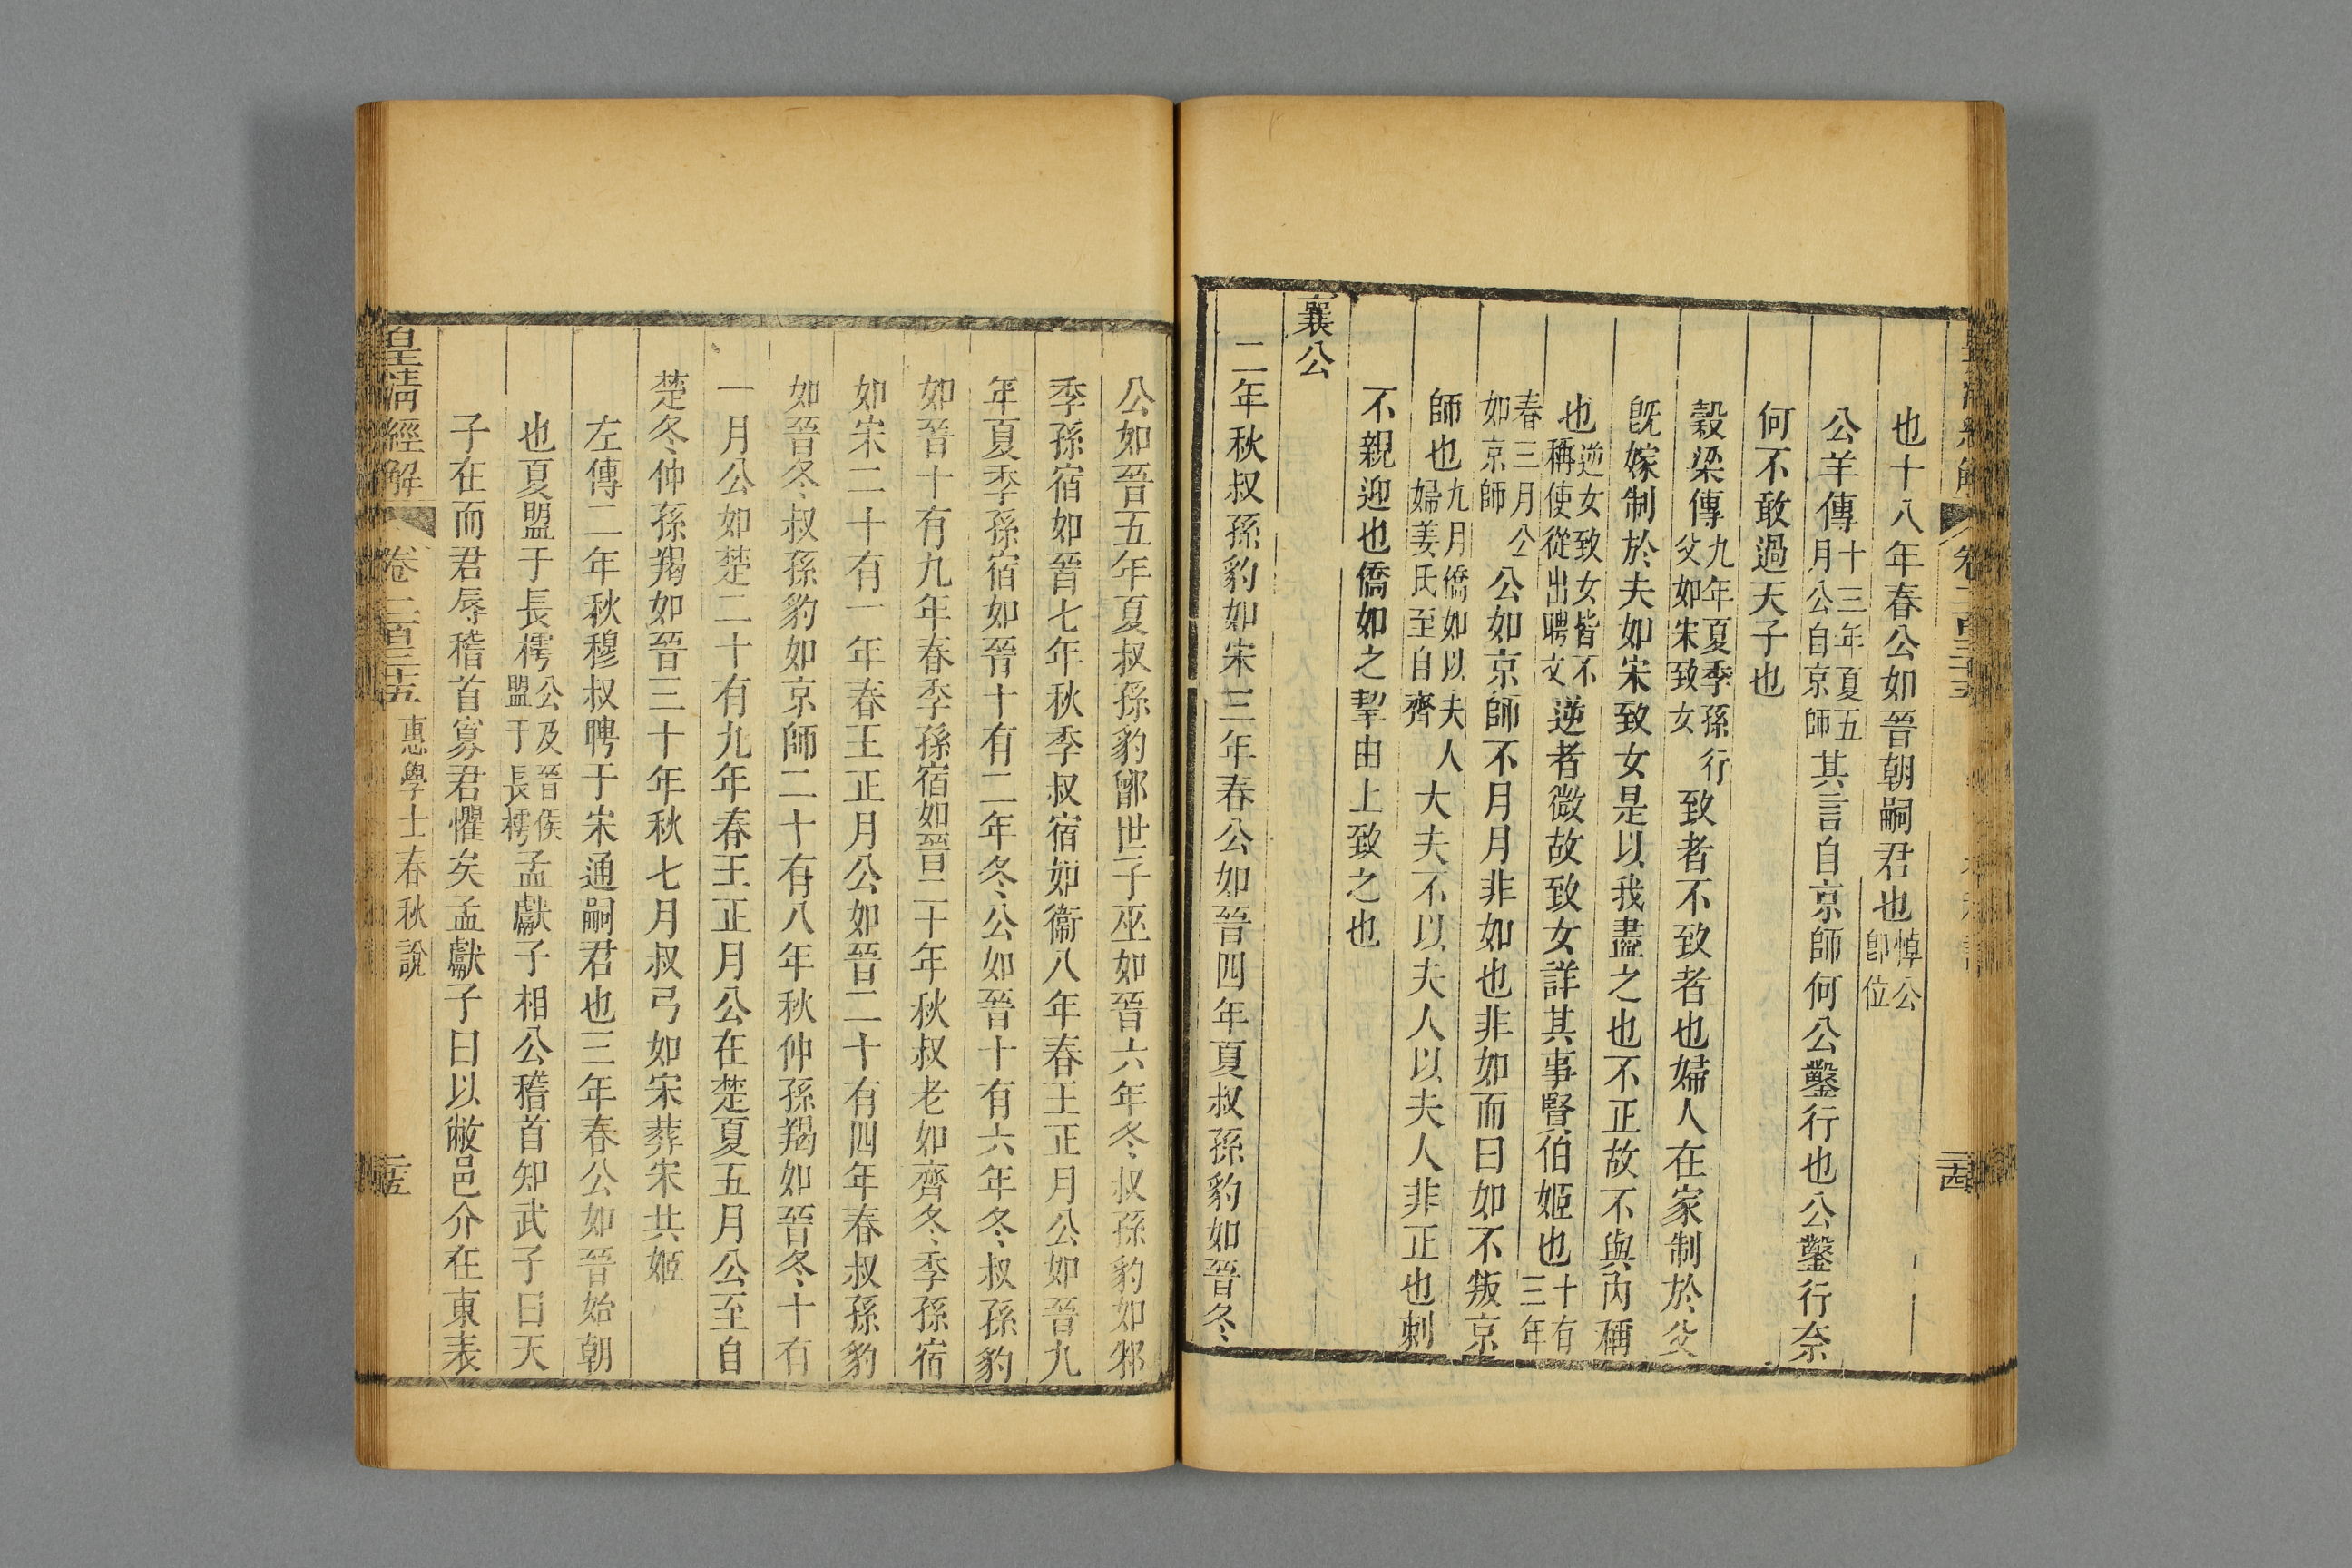 也十八年春公如晉朝嗣君也悼公卽位
公羊傳十三年夏五月公自京師其言自京師何公鑿行也公鑿行奈
何不敢過天子也
穀梁傳九年夏季孫行父如宋致女致者不致者也婦人在家制於父
旣嫁制於夫如宋致女是以我盡之也不正故不與內稱
也逆女致女皆不稱使從出聘文逆者微故致女詳其事賢伯姬也十有三年
春三月公如京師公如京師不月月非如也非如而曰如不叛京
師也九月僑如以夫人婦姜氏至自齊大夫不以夫人以夫人非正也刺
不親迎也僑如之挈由上致之也
襄公
二年秋叔孫豹如宋三年春公如晉四年夏叔孫豹如晉冬
二十四
公如晉五年夏叔孫豹鄫世子巫如晉六年冬叔孫豹如邾
季孫宿如晉七年秋季叔宿如衞八年春王正月公如晉九
年夏季孫宿如晉十有二年冬公如晉十有六年冬叔孫豹
如晉十有九年春季孫宿如晉二十年秋叔老如齊冬季孫宿
如宋二十有一年春王正月公如晉二十有四年春叔孫豹
如晉冬叔孫豹如京師二十有八年秋仲孫羯如晉冬十有
一月公如楚二十有九年春王正月公在楚夏五月公至自
楚冬仲孫羯如晉三十年秋七月叔弓如宋葬宋共姬
左傳二年秋穆叔聘于宋通嗣君也三年春公如晉始朝
也夏盟于長樗公及晉侯盟于長樗孟獻子相公稽首知武子曰天
子在而君辱稽首寡君懼矣孟獻子曰以敝邑介在東表
皇淸經解 卷二百三十五 惠學士春秋說 二十五